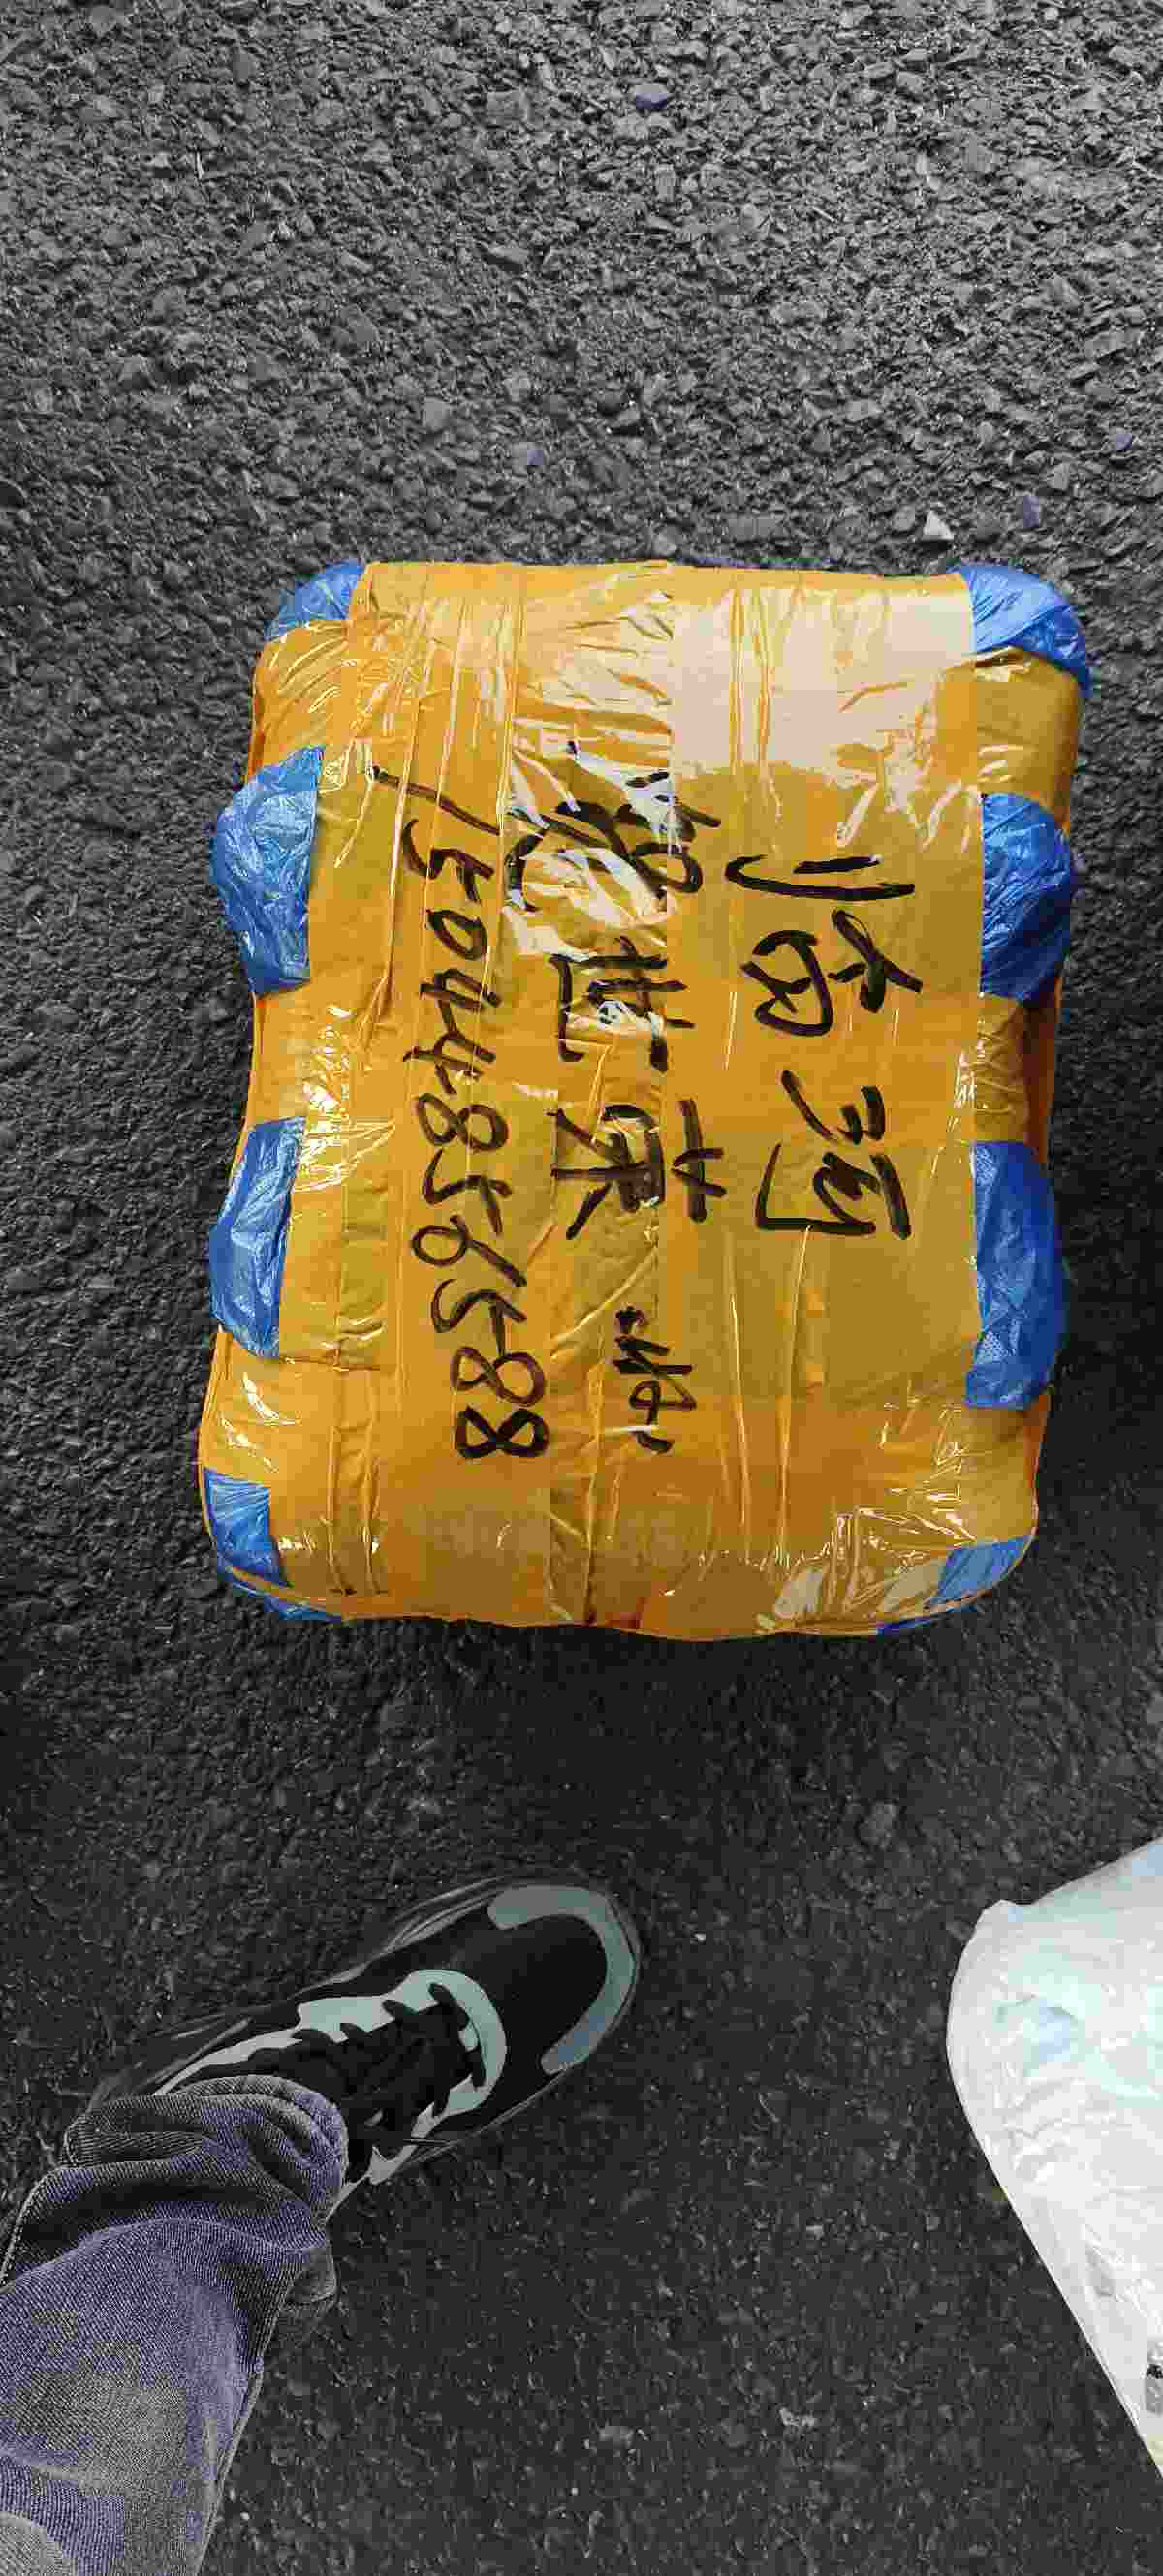 临河
世荣
15044856588